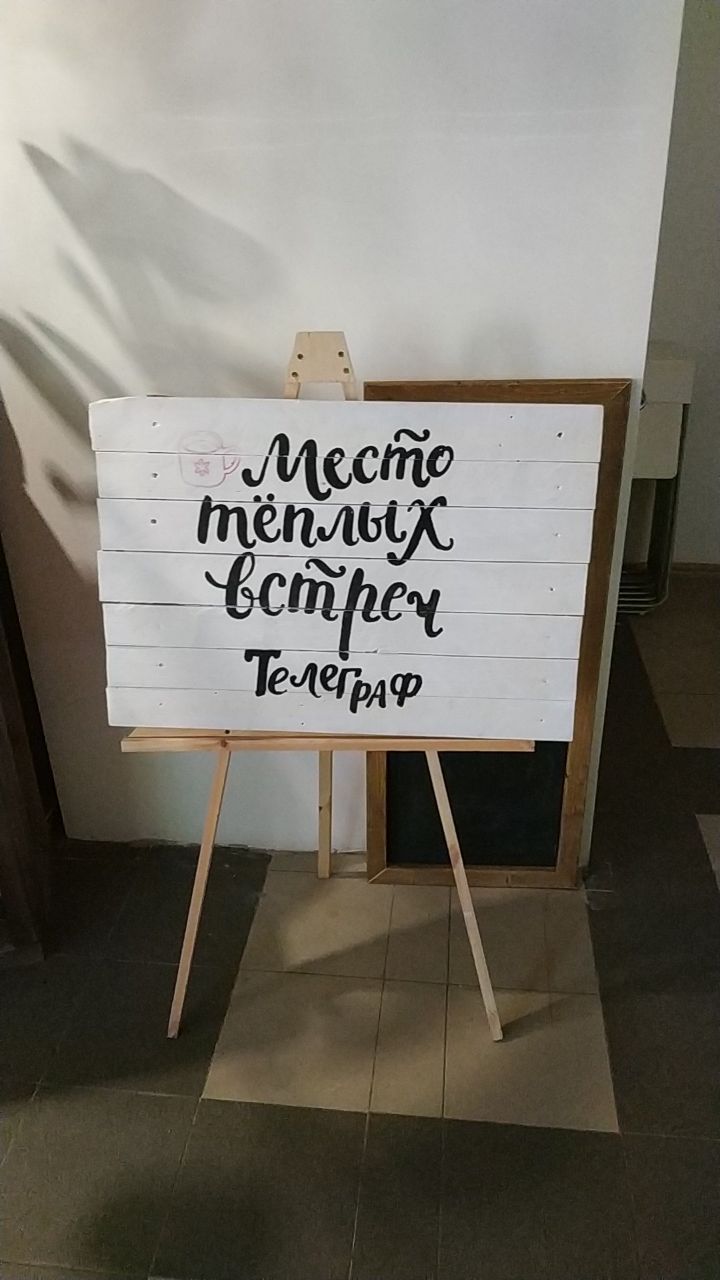 Место
тёплых
встреч
Телеграф